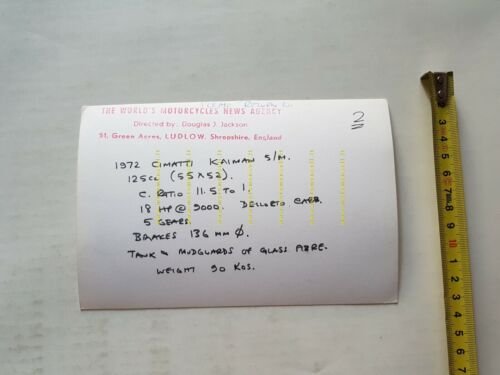 THE WORLD'S MOTORCYCLES NEWS AGENCY
Directed by: Douglas J. Jackson
51, Green Acres, LUDLOW, Shropshire, England
2
1972 CIMATTI KAIMAN S/M.
125cc (55x52).
C. RATIO 11.5 TO 1.
18 HP @ 9000. DELLORTO CARB.
5 GEARS.
BRAKES 136 MM Ø.
TANK & MUDGUARDS OF GLASS FIBRE.
WEIGHT 90 KGS.
3 4 5 6 7 8 9 10 1 2 3 4 5 6 7